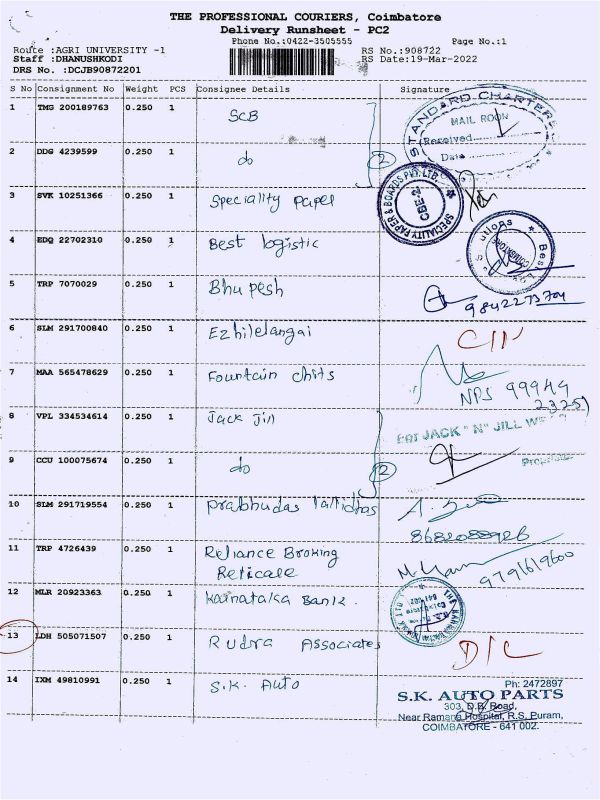 THE PROFESSIONAL COURIERS, Coimbatore
Delivery Runsheet - PC2
Phone No.:0422-3505555 Page No.:1
Route :AGRI UNIVERSITY -1 RS No.:908722
Staff :DHANUSHKODI RS Date:19-Mar-2022
DRS No. :DCJB90872201
S No Consignment No Weight PCS Consignee Details Signature
1 TMG 200189763 0.250 1 SCB
STANDARD CHARTERE
MAIL ROOM
Received
Date
2 DDG 4239599 0.250 1 do 2
3 SVK 10251366 0.250 1 Speciality paper
SPECIALITY PAPER & BOARDS PVT. LTD.
CBE-2
4 EDQ 22702310 0.250 1 Best logistic
Best
COIMBATORE
5 TRP 7070029 0.250 1 Bhupesh
9842273704
6 SLM 291700840 0.250 1 Ezhilelangai
7 MAA 565478629 0.250 1 Fountain chits
NPS 99949
23251
8 VPL 334534614 0.250 1 Jack Jill
JACK "N" JILL
9 CCU 100075674 0.250 1 do 2
10 SLM 291719554 0.250 1 prabhudas lallidhas
8682088926
11 TRP 4726439 0.250 1 Reliance Broking
Reticale
9791619600
12 MLR 20923363 0.250 1 Karnataka Bank.
13 LDH 505071507 0.250 1 Rudra Associates D/C
14 IXM 49810991 0.250 1 S.K. Auto
Ph: 2472897
S.K. AUTO PARTS
303, D.B. Road,
Near Ramana Hospital, R.S. Puram,
COIMBATORE - 641 002.